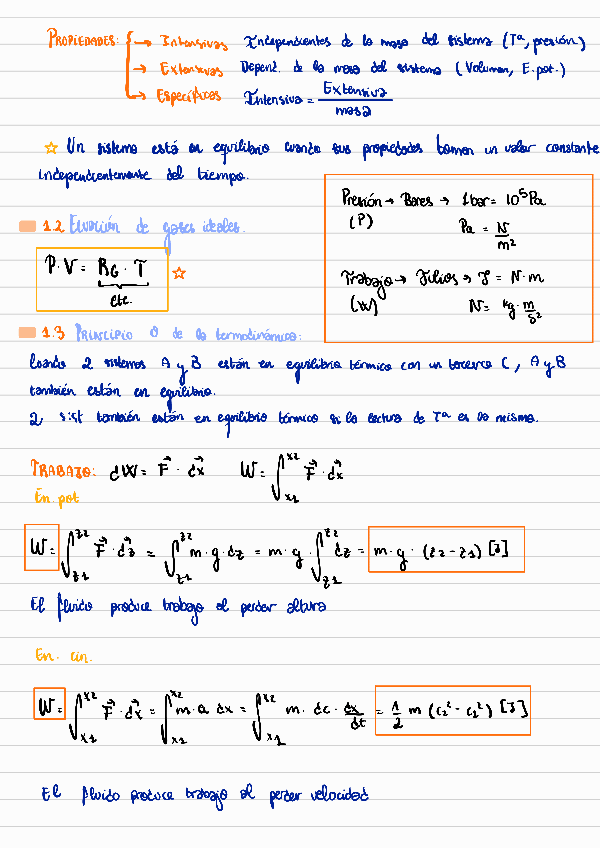 PROPIEDADES: → Intensivas Independientes de la masa del sistema (Tª, presión)
→ Extensivas Depend. de la masa del sistema (Volumen, E.pot.)
→ Específicas Intensiva = Extensiva / masa
☆ Un sistema está en equilibrio cuando sus propiedades toman un valor constante
independientemente del tiempo.
Presión → Bares → 1bar = 10⁵Pa
(P) Pa = N/m²
Trabajo → Julios → J = N·m
(W) N = kg·m/s²
1.2 Ecuación de gases ideales.
P·V = RG·T ☆
cte.
1.3 PRINCIPIO 0 de la termodinámica:
Cuando 2 sistemas A y B están en equilibrio térmico con un tercero C, A y B
también están en equilibrio.
2 sist también están en equilibrio térmico si la lectura de Tª es la misma.
TRABAJO: dW = F⃗ · dx⃗ W = ∫x1x2 F⃗ · dx⃗
En. pot
W = ∫z1z2 F⃗ · dz⃗ = ∫z1z2 m·g·dz = m·g·∫z1z2 dz = m·g·(z2-z1) [J]
El fluido produce trabajo al perder altura
En. cin.
W = ∫x1x2 F⃗ · dx⃗ = ∫x1x2 m·a dx = ∫x1x2 m·dc·dx/dt = 1/2 m (c₂² - c₁²) [J]
El fluido produce trabajo al perder velocidad